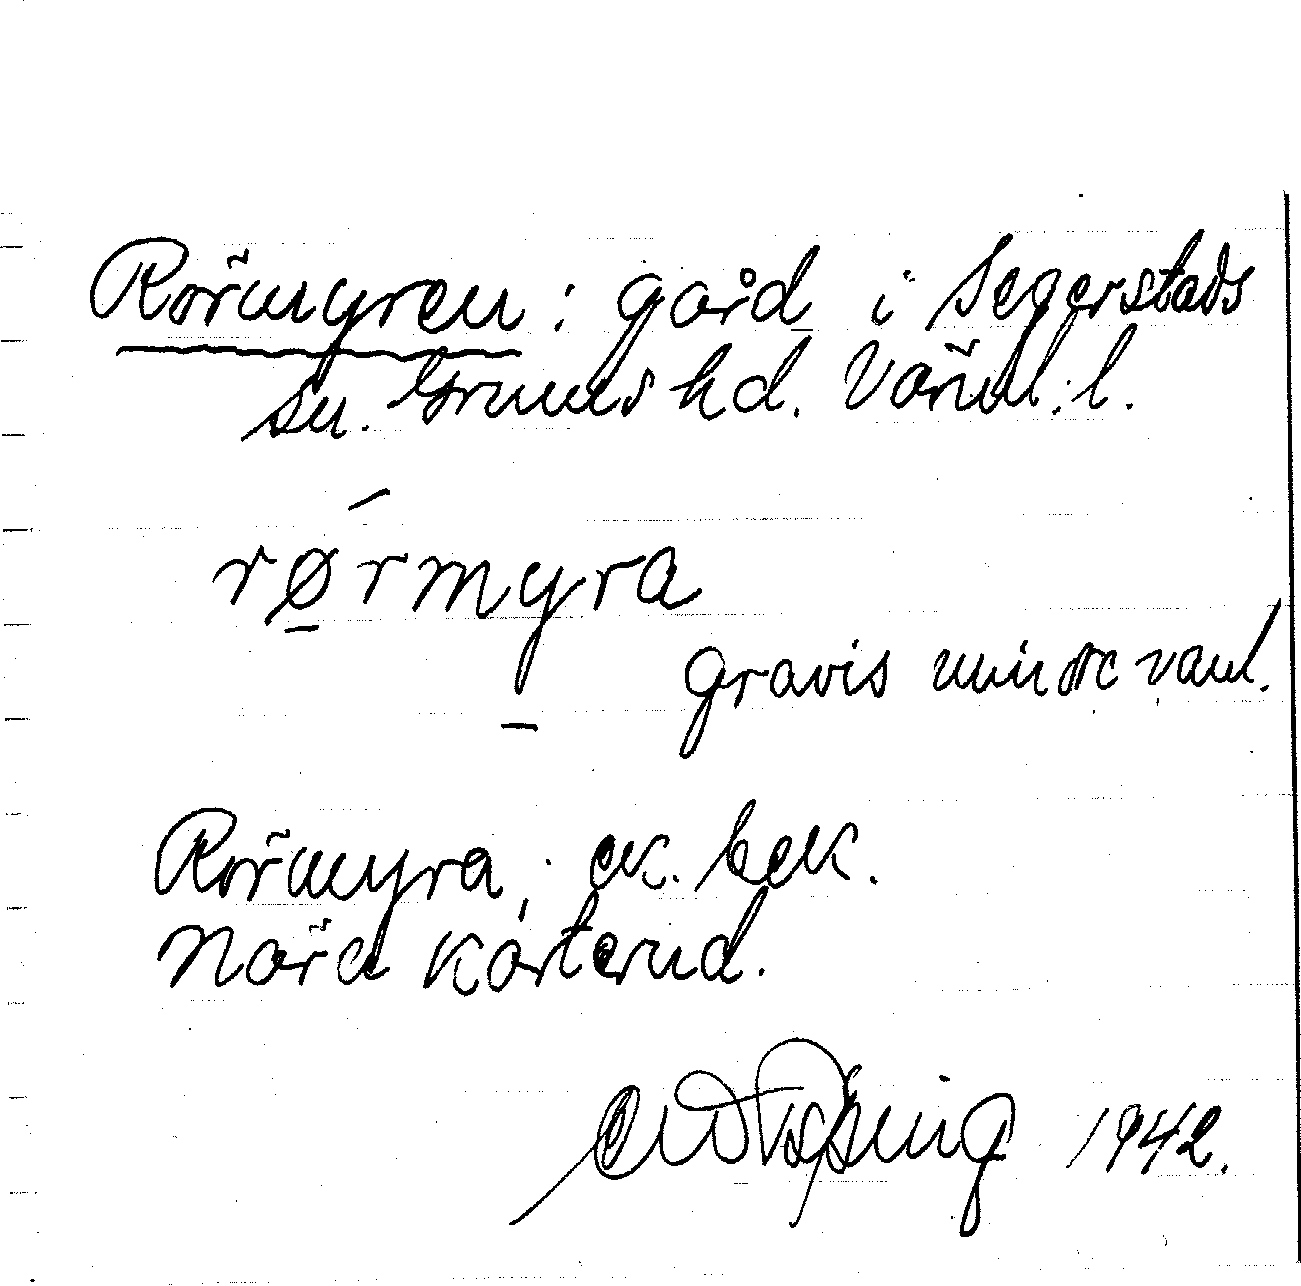 Rörmyren: gård i Segerstads
sn. Grums hd. Värml. l.
rørmyra
gravis mindre vanl.
Rörmyra, ek. bek.
Nära Kårterud.
1942.